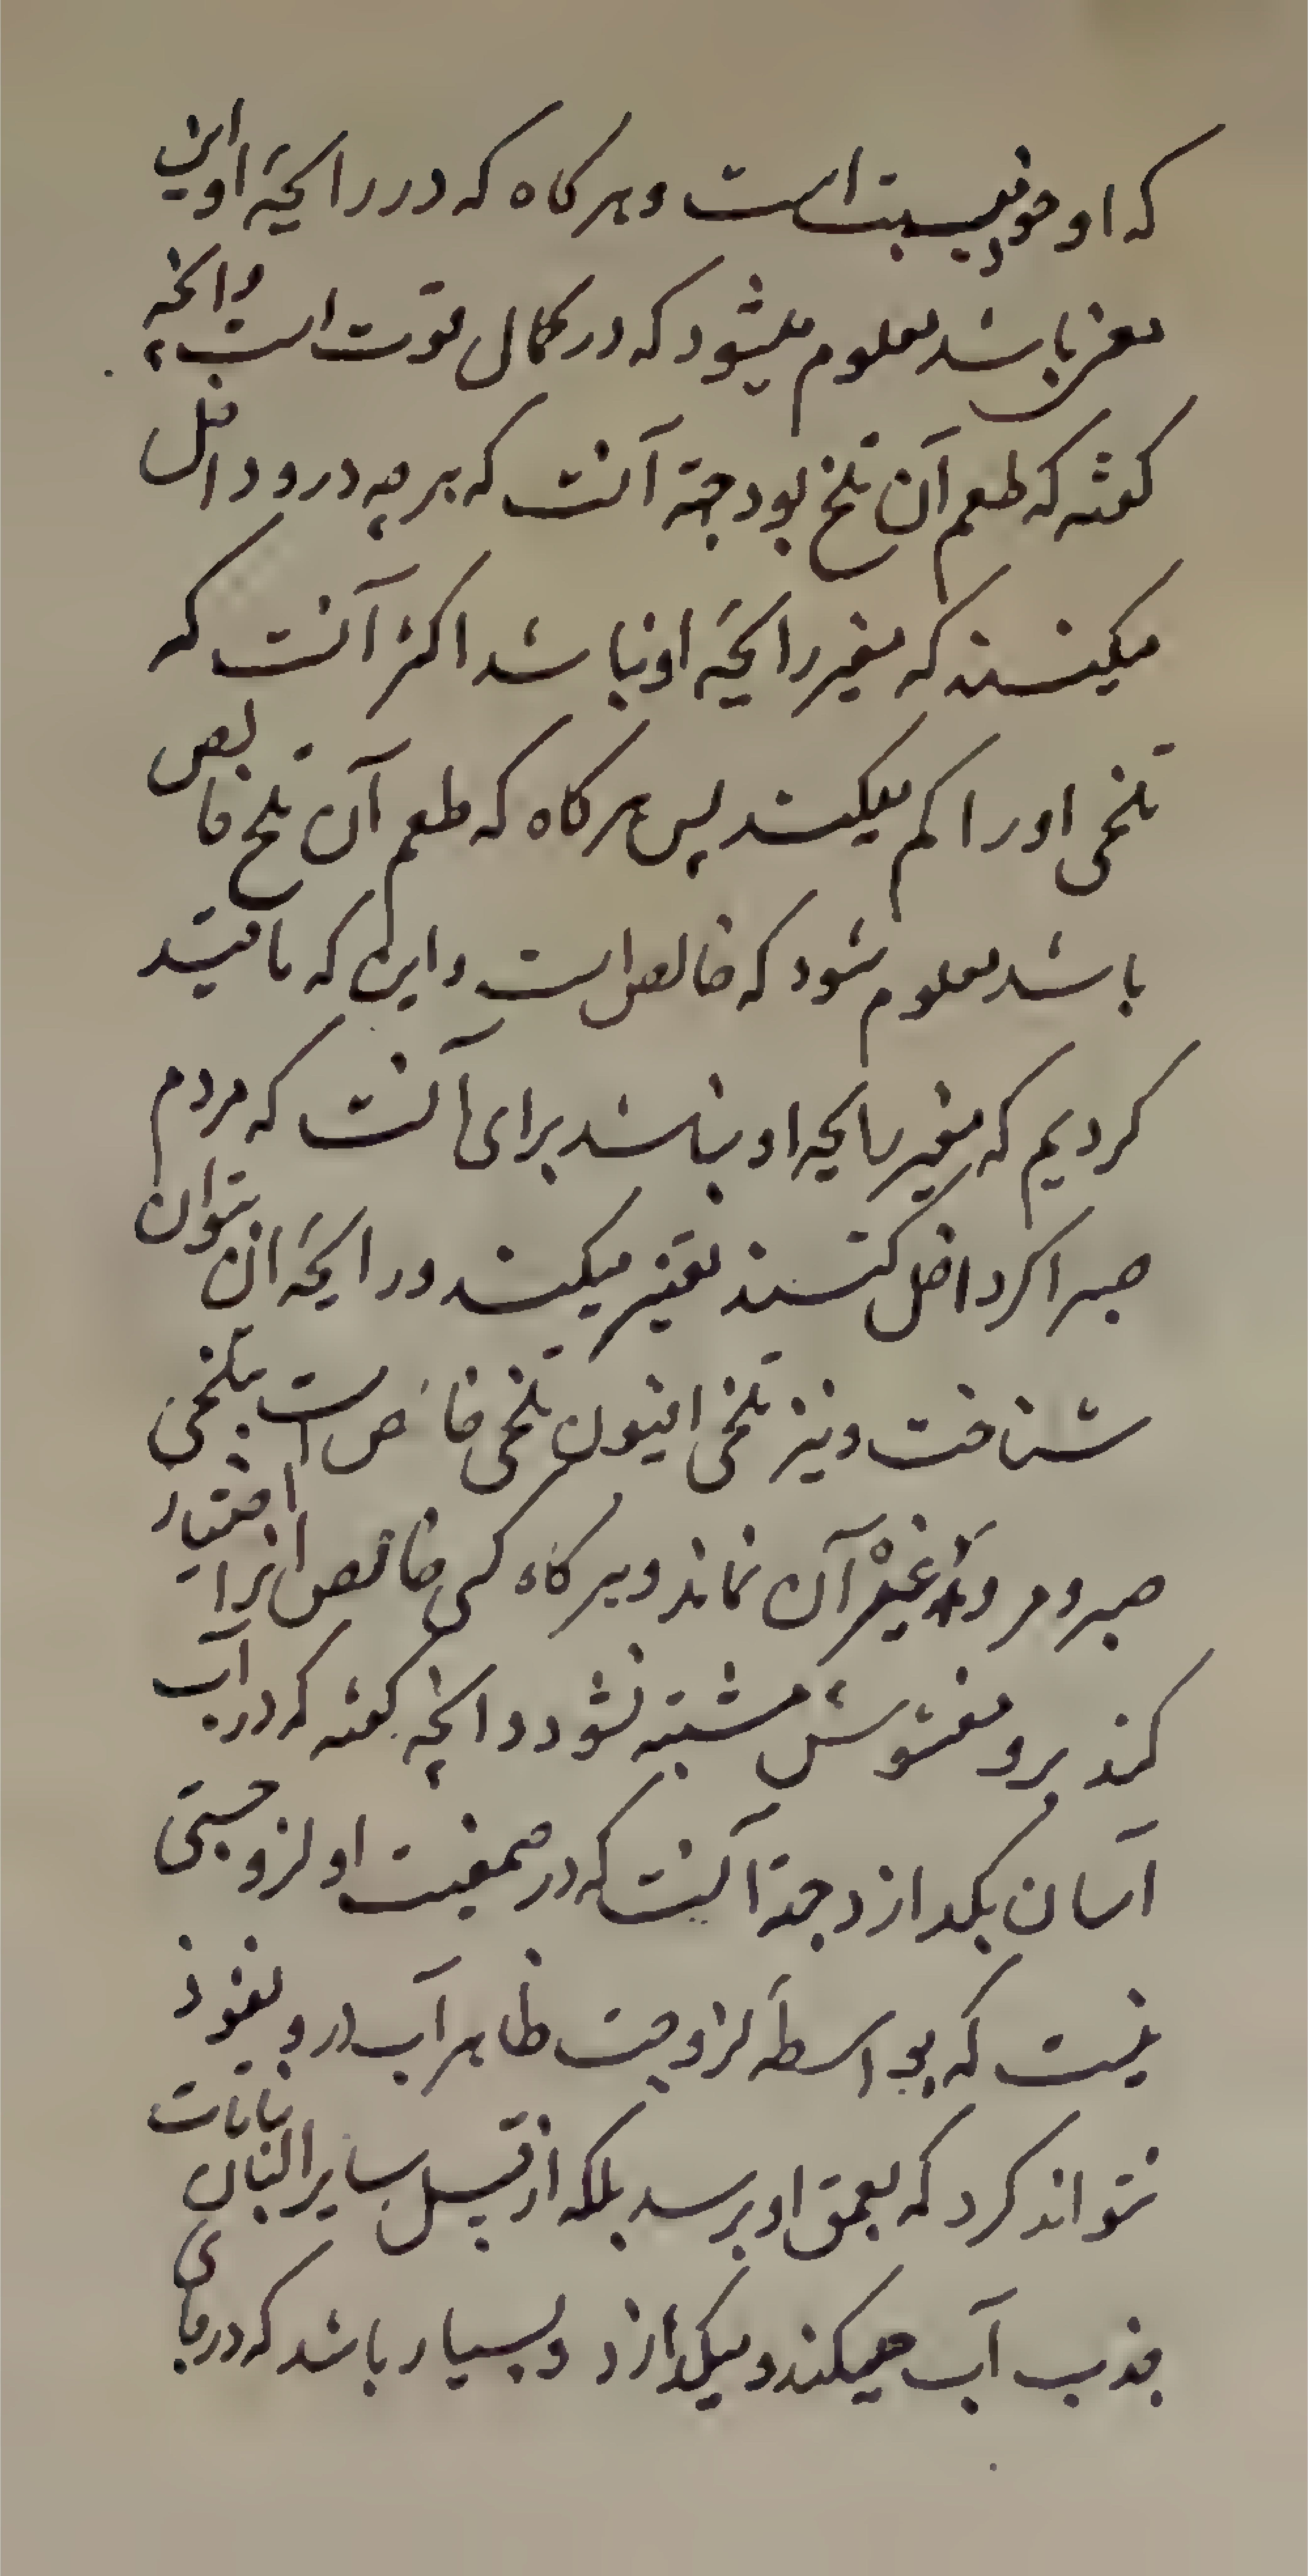 که او خوب نیست است و هر کاه که در رایحهٔ او این
معنی باشد معلوم میشود که در کمال قوت است و انچه
کفته که طعم آن تلخ بود جهة آنست که هر چه درو داخل
میکنند که مغیر رایحهٔ او نباشد اکثر آنست که
تلخی او را کم میکند پس هر کاه که طعم آن تلخ خالص
باشد معلوم شود که خالص است و این که ما قید
کردیم که مغیر رایحه او نباشد برای آنست که مردم
صبر اکر داخل کنند تغیر میکند و رایحهٔ ان بتوان
شناخت و نیز تلخی افیون تلخی خاص است بتلخی
صبر و مر و غیر آن نماند و هر کاه کسی خالص انرا اختیار
کند برو مغشوش مشتبه نشود و انچه کفته که در آب
آسان بکدازد جهة آنست که در صمغیت او لزوجتی
نیست که بواسطهٔ لزوجت ظاهر آب درو نفوذ
نتواند کرد که بعمق او برسد بلکه از قبیل سایر البان نباتات
جذب آب میکند و میکدازد و بسیار باشد که در جای